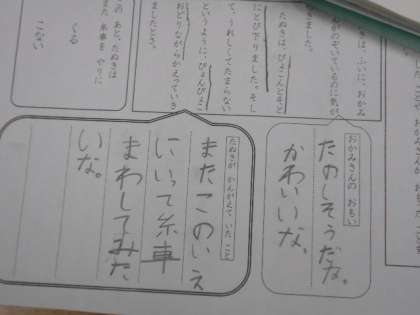 きは、ふいに、おかみ
がのぞいているのに気が
きました。
たぬきは、ぴょこんとそと
にとび下りました。そし
て、うれしくてたまらない
というように、ぴょんぴょこ
おどりながらかえっていき
ましたとさ。
あと、たぬきは
また 糸車を やりに
くる
こない
おかみさんの おもい
たのしそうだな。
かわいいな、
たぬきが かんがえて いた こと
またこのいえ
にいって糸車
まわしてみた
いな。